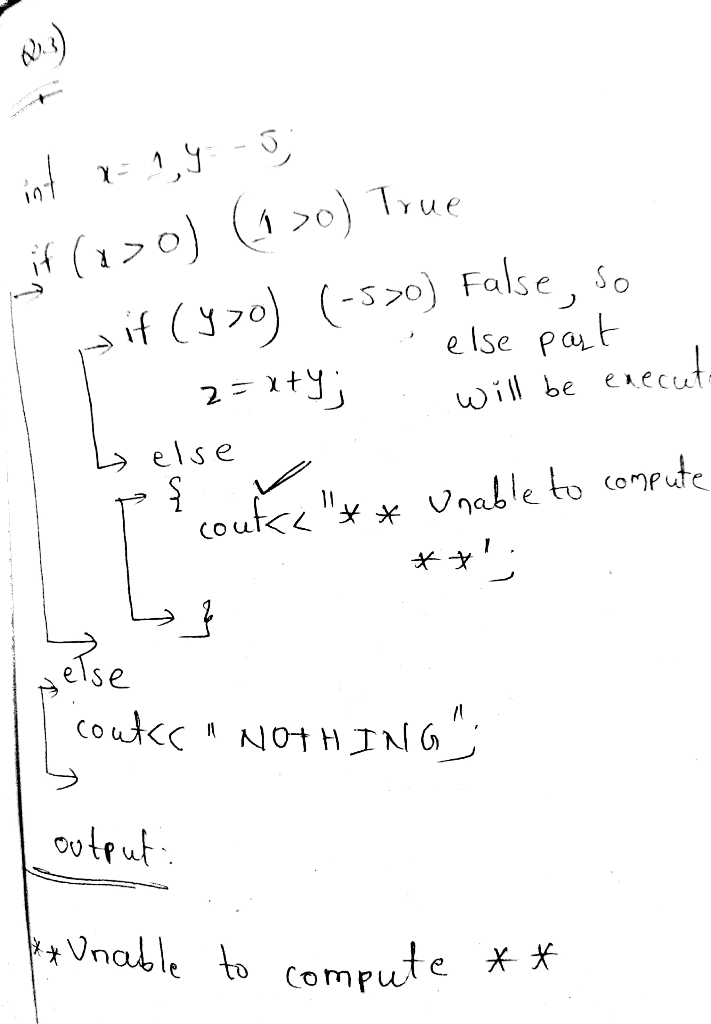 Q.3)
int x=1,y=-5;
if (x>0) (1>0) True
if (y>0) (-5>0) False, so
else part
z=x+y; will be execut
else
{
cout<<"** Unable to compute
**";
}
else
cout<< "NOTHING";
output:
** Unable to compute **